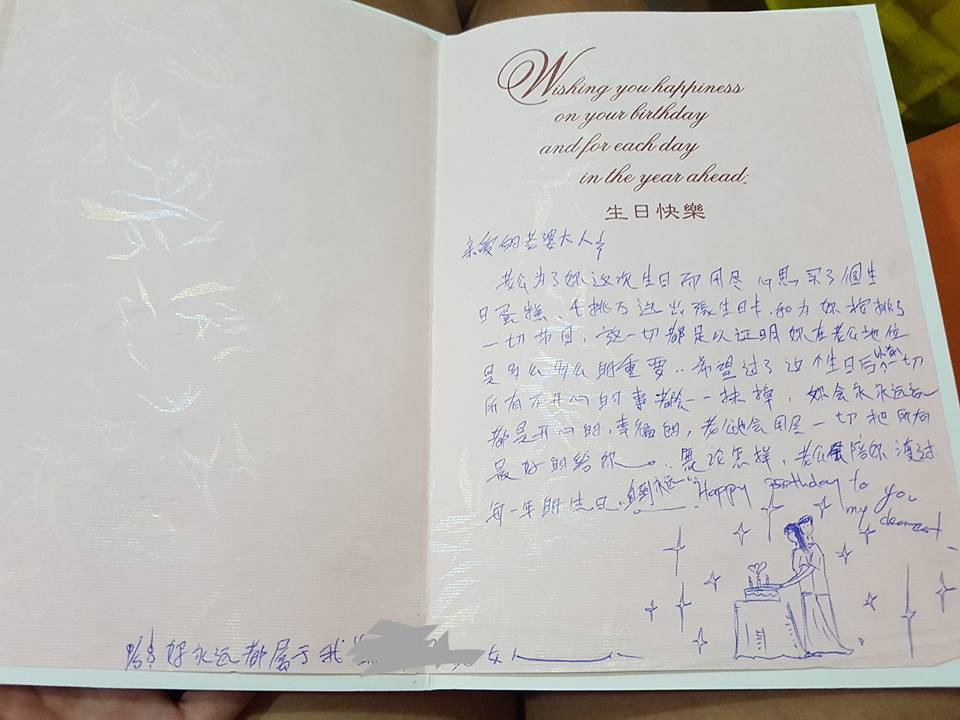 Wishing you happiness
on your birthday
and for each day
in the year ahead.
生日快樂
亲爱的老婆大人
老公为了妳这次生日而用尽心思买了個生
日蛋糕、千挑万选出張生日卡.和为妳按排了
一切节目，这一切都是以证明妳在老公地位
是多么多么的重要..希望过了这个生日后一切
所有不开心的事都会一一抹掉，妳会永永远远
都是开心的,幸福的，老公也会用尽一切把所有
最好的给妳..無论怎样，老公陪妳渡过
每一年的生日..到永远..Happy Birthday to you
my dearest
妳永远都属于我
女人